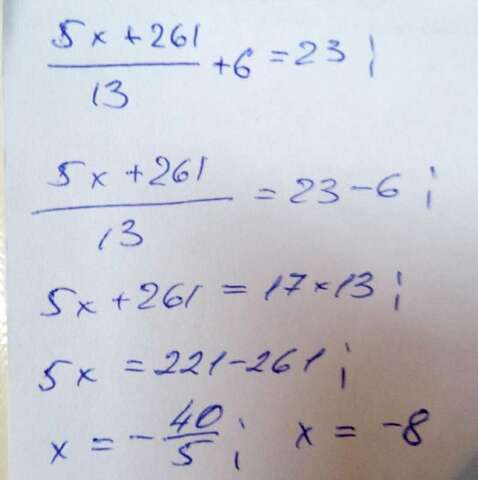 (5x+261)/13 +6=23;
(5x+261)/13 =23-6;
5x+261=17×13;
5x=221-261;
x=-40/5; x=-8